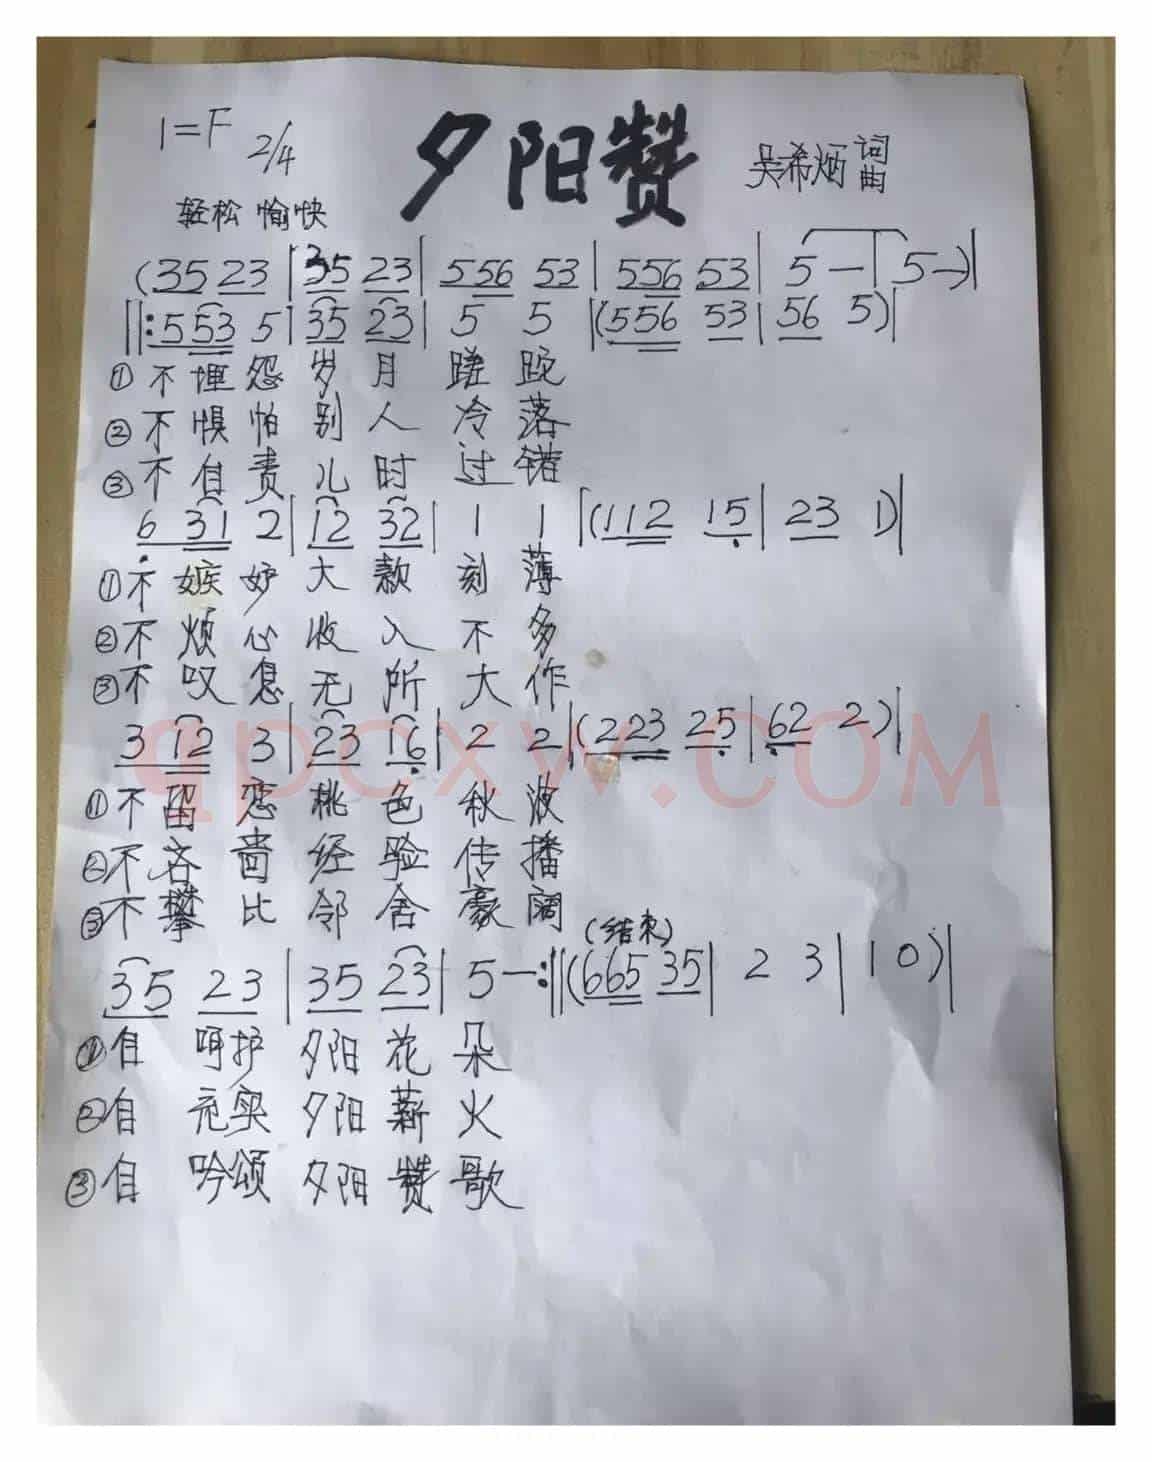 1=F 2/4 夕阳赞 吴希炳 词曲
轻松 愉快
(35 23 | 35 23 | 556 53 | 556 53 | 5 — | 5 —) |
||: 553 5 | 35 23 | 5 5 | (556 53 | 56 5) |
① 不埋怨岁月蹉跎
② 不惧怕别人冷落
③ 不自责儿时过错
6 31 2 | 12 32 | 1 1 | (112 15 | 23 1) |
① 不嫉妒大款刻薄
② 不烦心收入不多
③ 不叹息无所大作
3 12 3 | 23 16 | 2 2 | (223 25 | 62 2) |
qpcxw.COM
① 不留恋桃色秋波
② 不吝啬经验传播
③ 不攀比邻舍豪阔
(结束)
35 23 | 35 23 | 5 — :|| (665 35 | 2 3 | 1 0) |
① 自 呵护 夕阳花朵
② 自 充实 夕阳薪火
③ 自 吟颂 夕阳赞歌